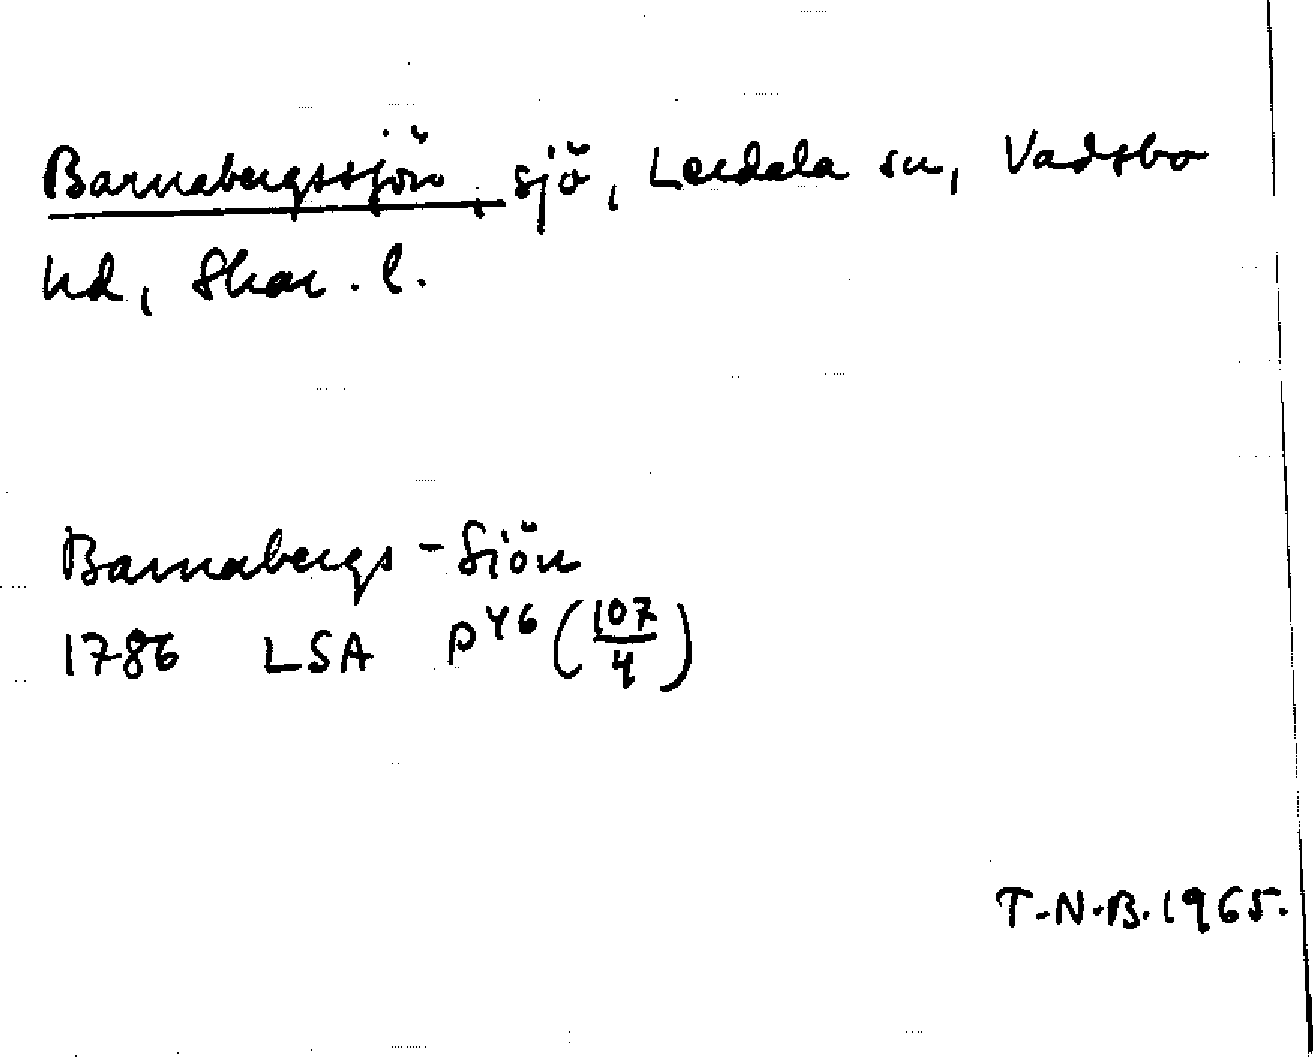 Barnabergssjön, sjö, Lerdala sn, Vadsbo
hd, Skar. l.
Barnabergs-Siön
1786 LSA P46 (107/4)
T.N.B. 1965.